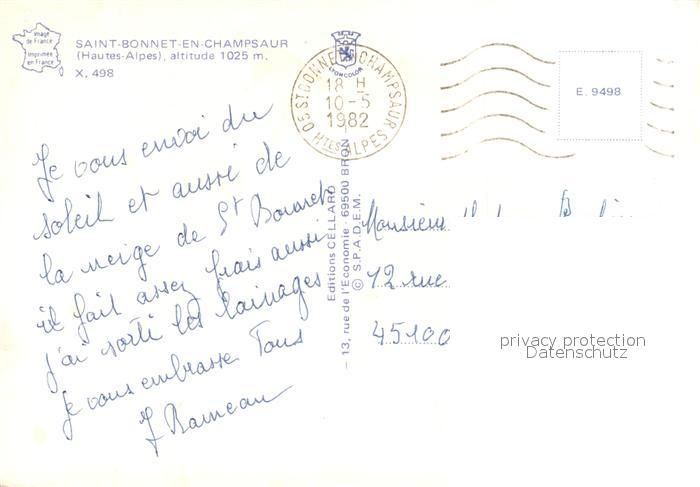 Image
de France
Imprimée
en France
SAINT-BONNET-EN-CHAMPSAUR
(Hautes-Alpes), altitude 1025 m.
X. 498
LYONCOLOR
05 ST BONNET EN CHAMPSAUR
18 H
10-5
1982
HTES ALPES
E. 9498
Je vous envoi du
soleil et aussi de
la neige de St Bonnet
il fait assez frais aussi
j'ai sorti les lainages
je vous embrasse Tous
Editions CELLARD
— 13, rue de l'Economie - 69500 BRON
© S.P.A.D.E.M.
Monsieur
12 rue
45100
privacy protection
Datenschutz